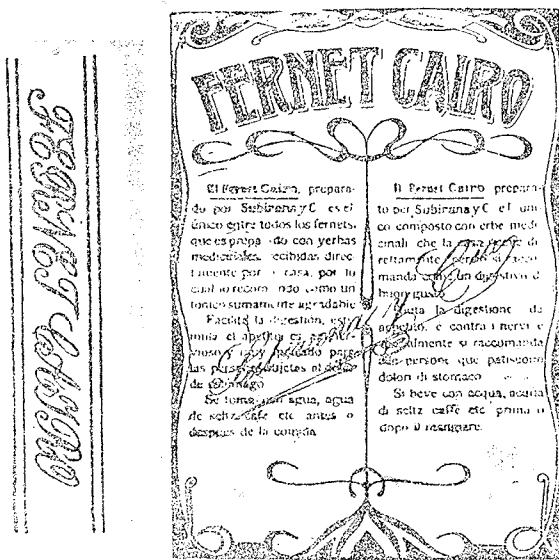 FERNET CAIRO
FERNET CAIRO
El Fernet Cairo, prepara-
do por Subirana y C es el
único entre todos los fernets,
que es prepa do con yerbas
medicinales, ecibidas direc
tamente por casa, por lo
cual lo recom ndo como un
tonico sumamente agradable
Facilita la digestión, esti
mula el apetito es
vioso y muy indicado para
las personas sujetas al dolor
de estomago
Se toma con agua, agua
de seltz cafe etc antes o
despues de la comida
Il Fernet Cairo prepara-
to per Subirana y C e l' uni
co composto con erbe medi
cinali che la casa di
rettamente percio si racco
manda come un digestivo d
buon gusto
Aiuta la digestione da
appetito, é contra i nervi e
specialmente si raccomanda
persone que patiscono
dolori di stomaco
Si beve con acqua, acqua
di seltz caffe etc prima o
dopo il mangiare.